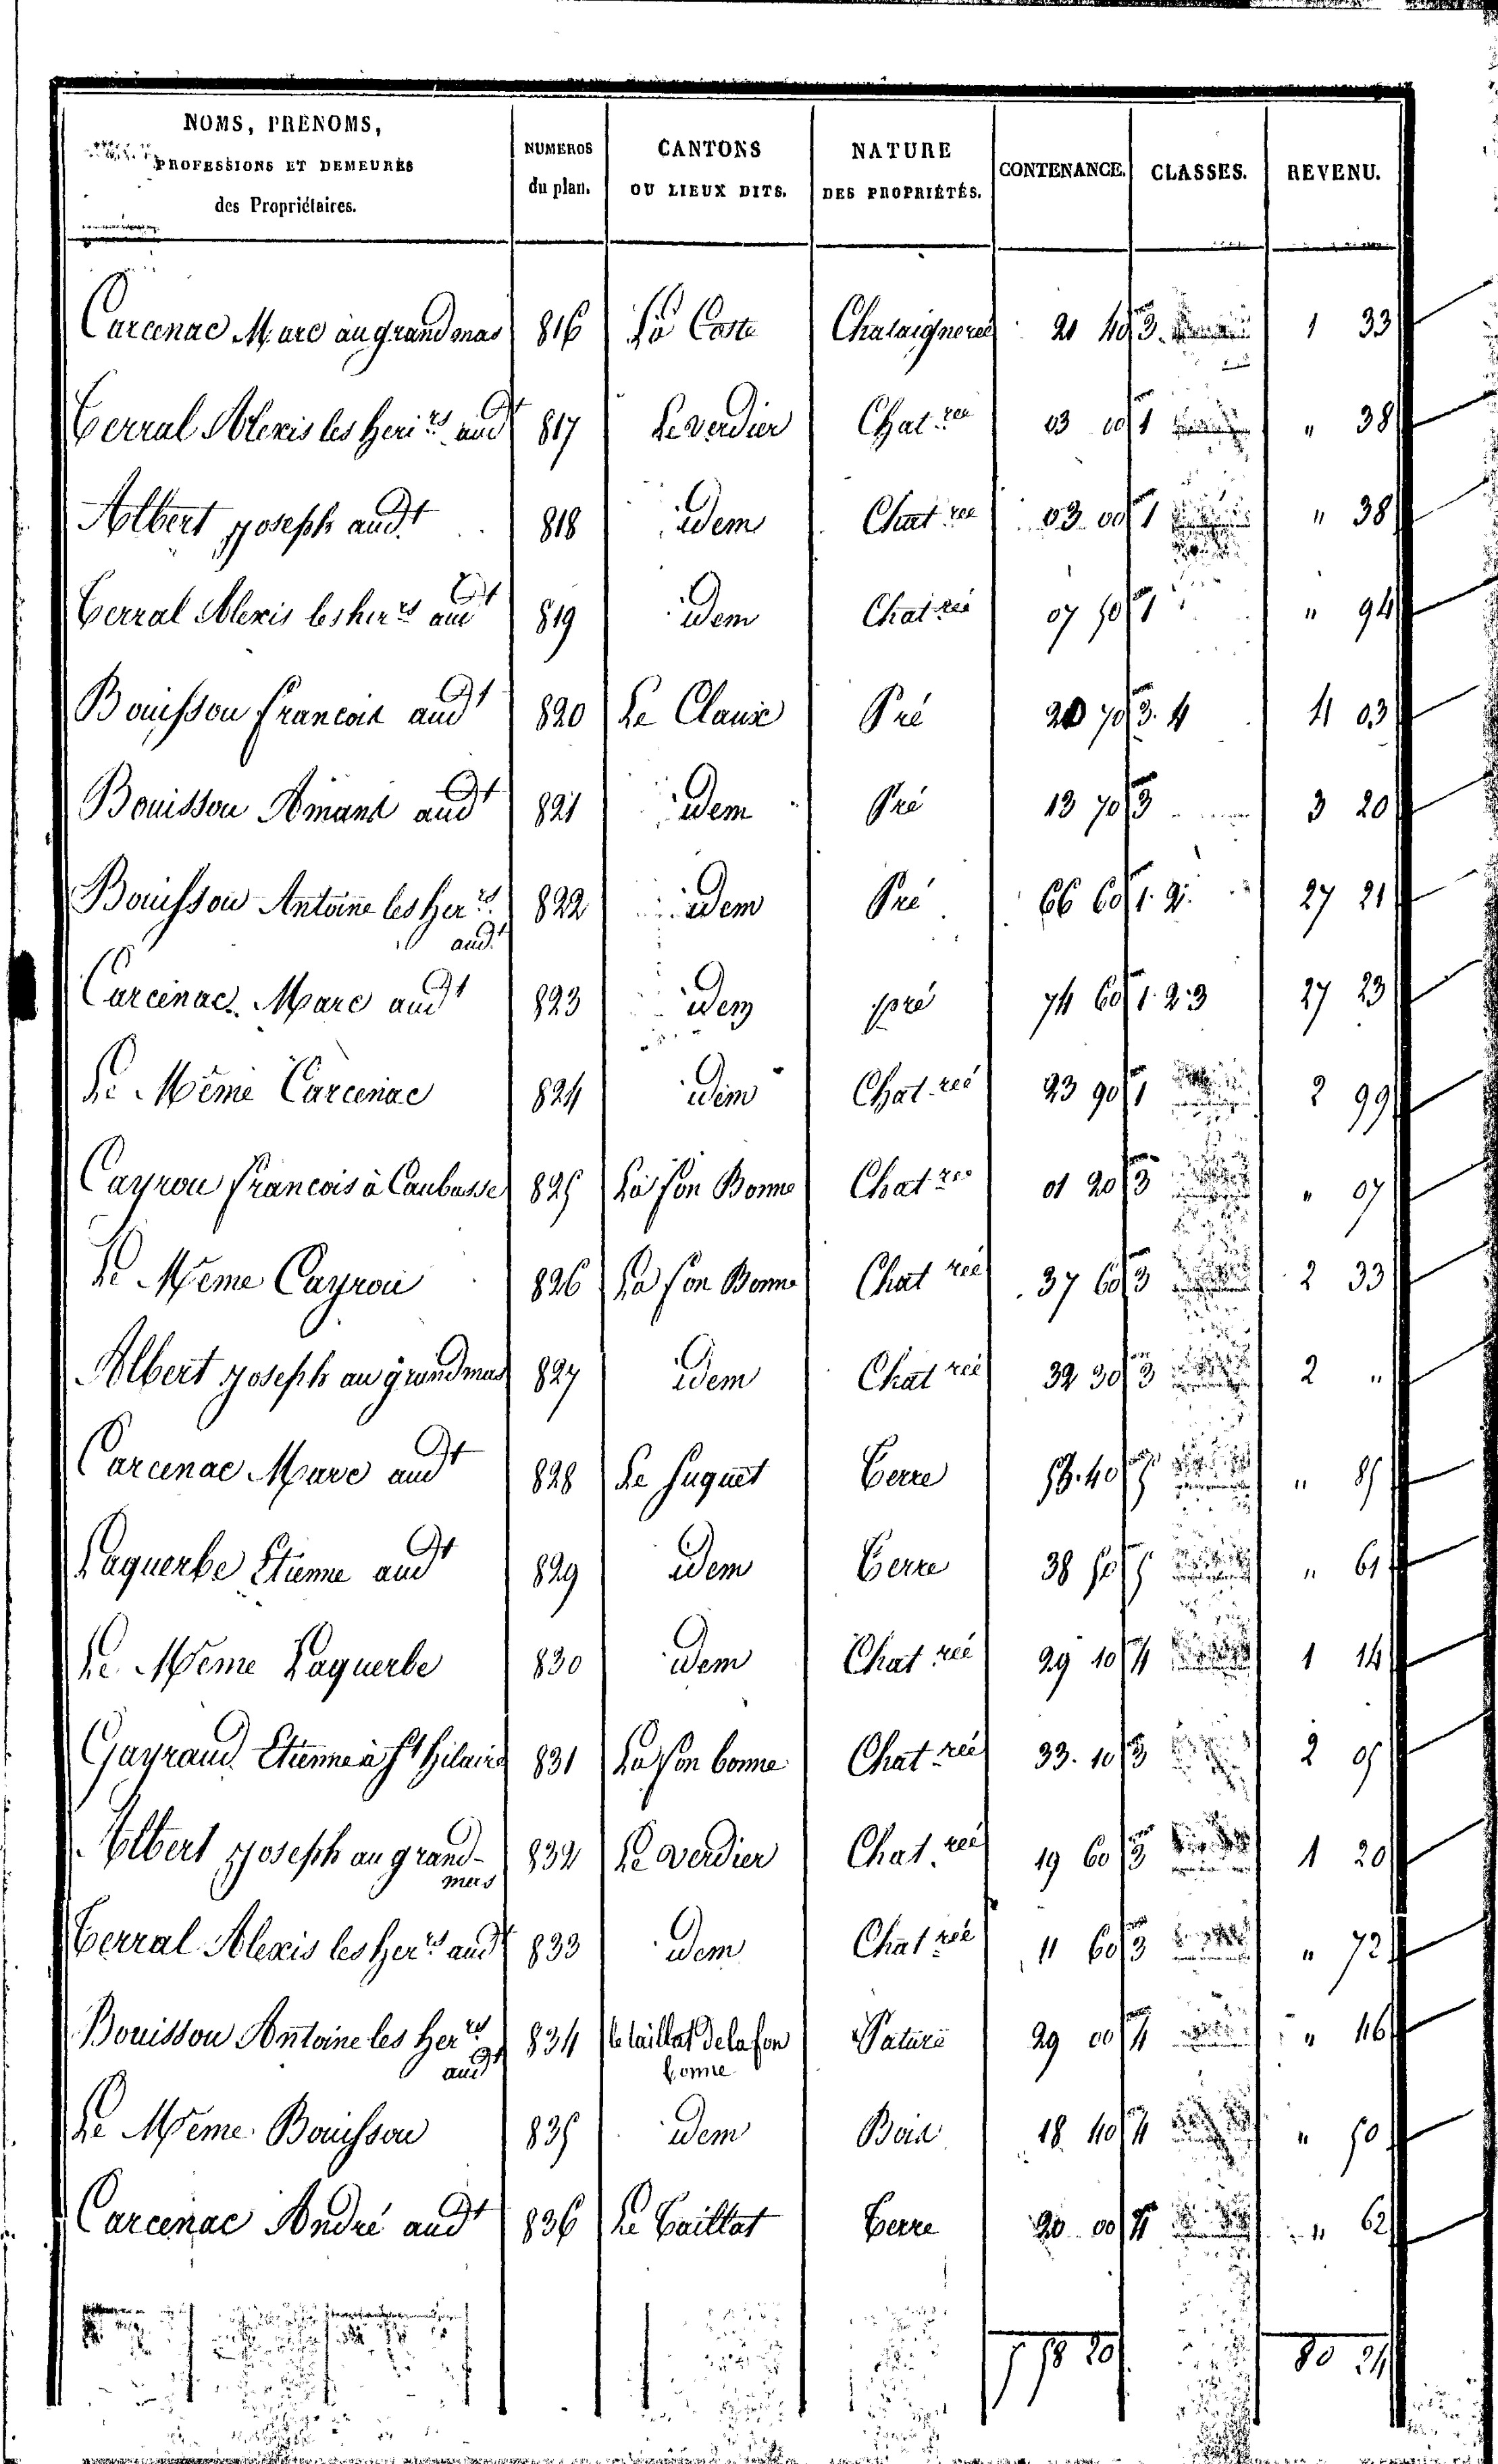 NOMS, PRENOMS, PROFESSIONS ET DEMEURES des Propriétaires. NUMEROS du plan. CANTONS OU LIEUX DITS. NATURE DES PROPRIÉTÉS. CONTENANCE. CLASSES. REVENU.
Carcenac Marc au grand mas 816 La Coste Chataigneree 21 40 3. 1 33
Terral Alexis les heri.rs aud.t 817 Le verdier Chat.ree 03 00 1 " 38
Albert joseph aud.t 818 idem Chat ree 03 00 1 " 38
Terral Alexis les her.rs aud.t 819 idem Chat.reé 07 50 1 " 94
Bouisson francois aud.t 820 Le Claux Pré 20 70 3. 4 4 03
Bouisson Amans aud.t 821 idem Pré 13 70 3 3 20
Bouisson Antoine les her.rs 822 idem Pré 66 60 1. 2. 27 21
aud.t
Carcenac Marc aud.t 823 idem pré 74 60 1. 2. 3 27 23
Le Même Carcenac 824 idem Chat.reé 23 90 1 2 99
Cayrou francois à Caubasse 825 La fon Bonne Chat.ree 01 20 3 " 07
Le Même Cayrou 826 La fon Bonne Chat reé 37 60 3 2 33
Albert joseph au grand mas 827 idem Chat reé 32 30 3 2 "
Carcenac Marc aud.t 828 Le suquet Terre 53.40 5 " 85
Laquerbe Etienne aud.t 829 idem Terre 38 50 5 " 61
Le Même Laquerbe 830 idem Chat reé 29 10 4 1 14
Gayraud Etienne à St hilaire 831 La fon bonne Chat.reé 33.10 3 2 05
Albert joseph au grand- 832 Le verdier Chat.reé 19 60 3 1 20
mas
Terral Alexis les her.rs aud.t 833 idem Chat reé 11 60 3 " 72
Bouisson Antoine les her.rs 834 le taillat de la fon Pature 29 00 4 " 46
aud.t bonne
Le Même Bouisson 835 idem Bois 18 40 4 " 50
Carcenac André aud.t 836 Le Taillat Terre 20 00 4 " 62
5 58 20 80 24